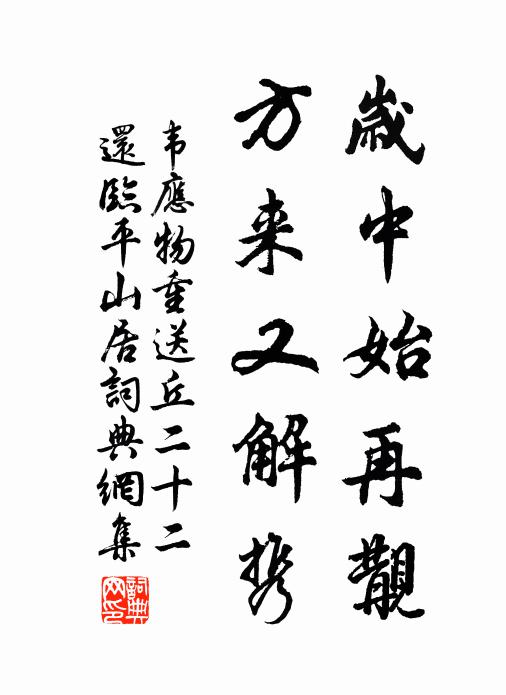 歲中始再觀
方来又解携
韦應物重送丘二十二
還臨平山居詞典網集
詞典網印